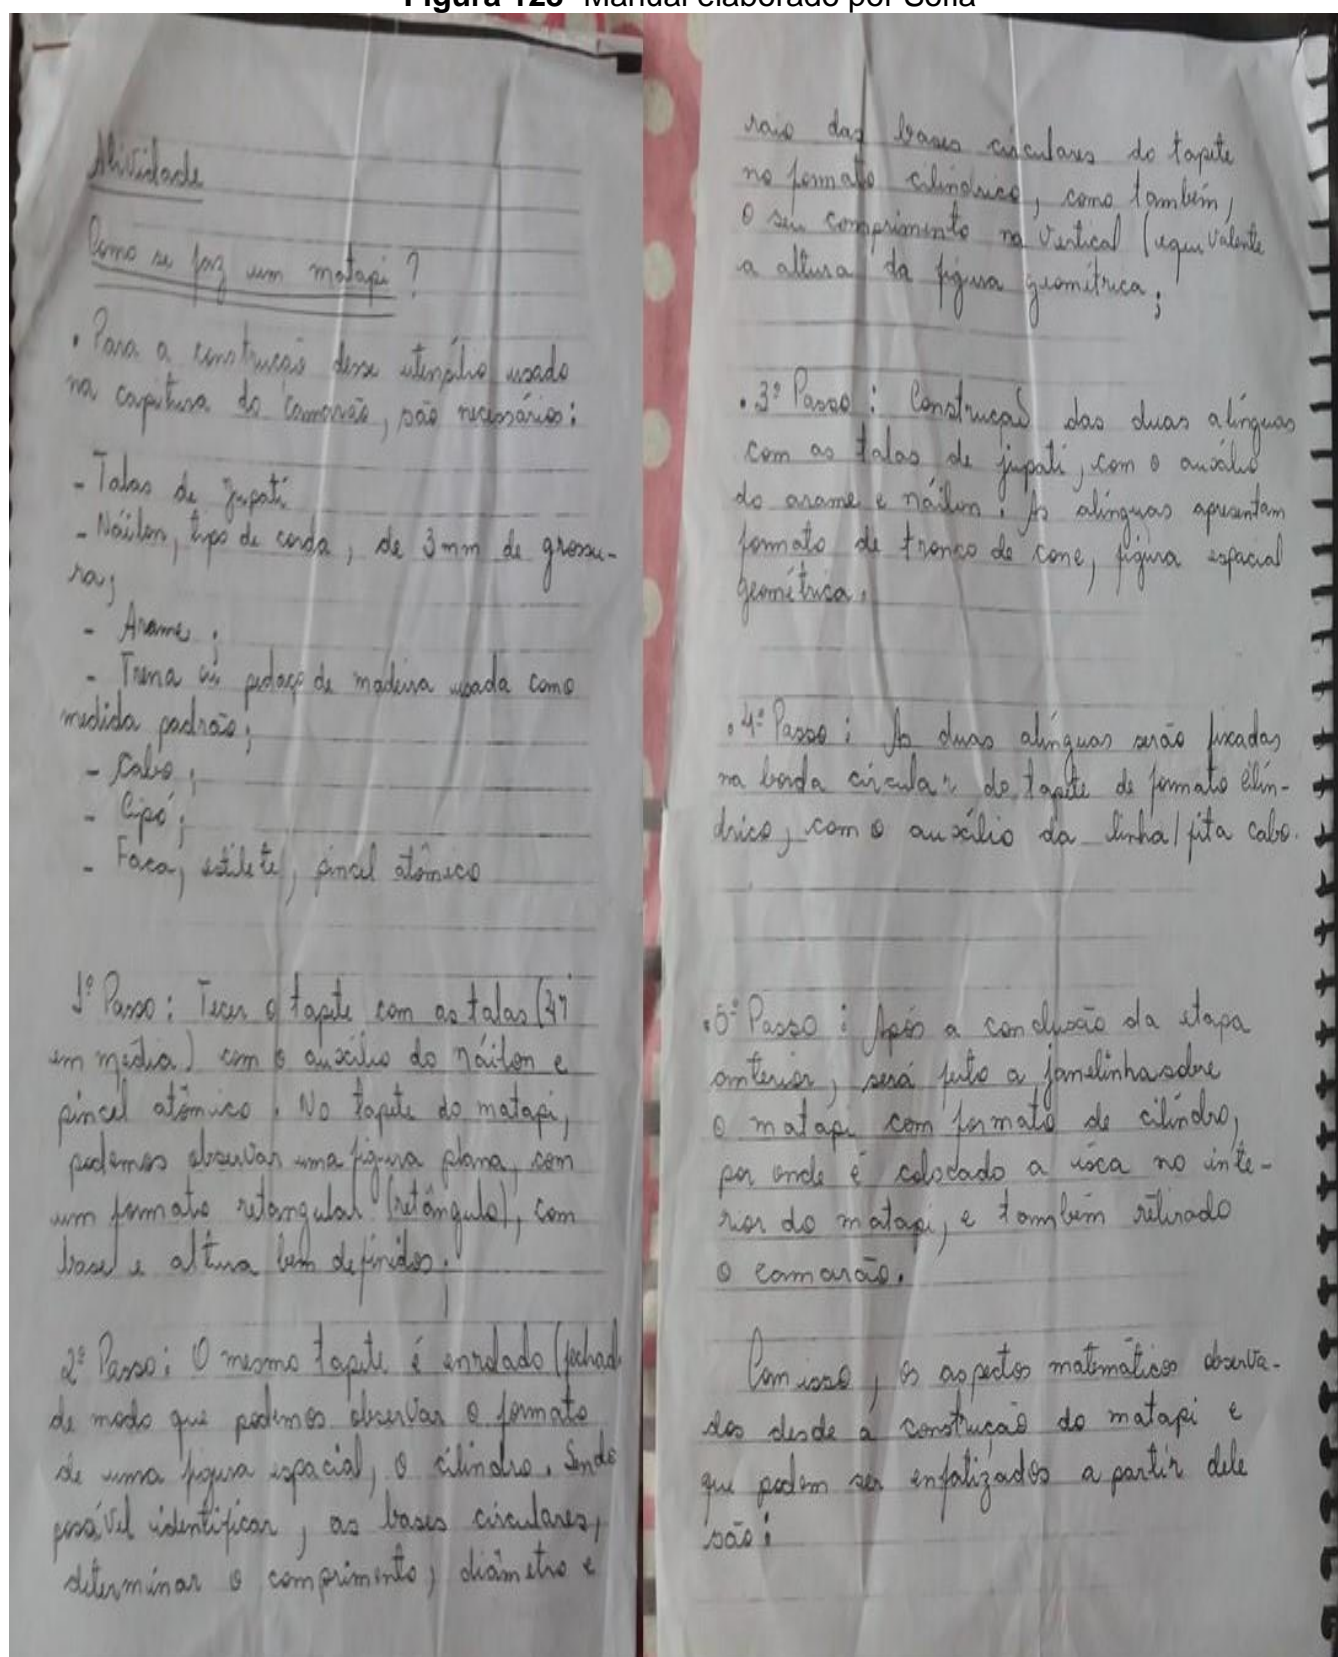 Figura 128- Manual elaborado por Sofia
Atividade
Como se faz um matapi?
• Para a construção desse utensílio usado
na capitura do camarão, são necessários:
- Talas de jupati
- Náilon, tipo de corda, de 3mm de grossu-
ra;
- Arame;
- Trena ou pedaço de madeira usada como
medida padrão;
- Cabo;
- Cipó;
- Faca, estilete, pincel atômico
1º Passo: Tecer o tapete com as talas (
em média) com o auxílio do náilon e
pincel atômico. No tapete do matapi,
podemos observar uma figura plana, com
um formato retangular (retângulo), com
base e altura bem definidos;
2º Passo: O mesmo tapete é enrolado (fechad
de modo que podemos observar o formato
de uma figura espacial, o cilindro. Sendo
possível identificar, as bases circulares,
determinar o comprimento, diâmetro e
raio das bases circulares do tapete
no formato cilíndrico, como também,
o seu comprimento na vertical (equivalente
a altura da figura geométrica;
• 3º Passo: Construção das duas alínguas
com as talas de jupati, com o auxílio
do arame e náilon. As alínguas apresentam
formato de tronco de cone, figura espacial
geométrica.
• 4º Passo: As duas alínguas serão fixadas
na borda circular do tapete de formato cilín-
drico, com o auxílio da linha/fita cabo.
• 5º Passo: Após a conclusão da etapa
anterior, será feito a janelinha sobre
o matapi com formato de cilíndro,
por onde é colocado a isca no inte-
rior do matapi, e também retirado
o camarão.
Com isso, os aspectos matemáticos observa-
dos desde a construção do matapi e
que podem ser enfatizados a partir dele
são: